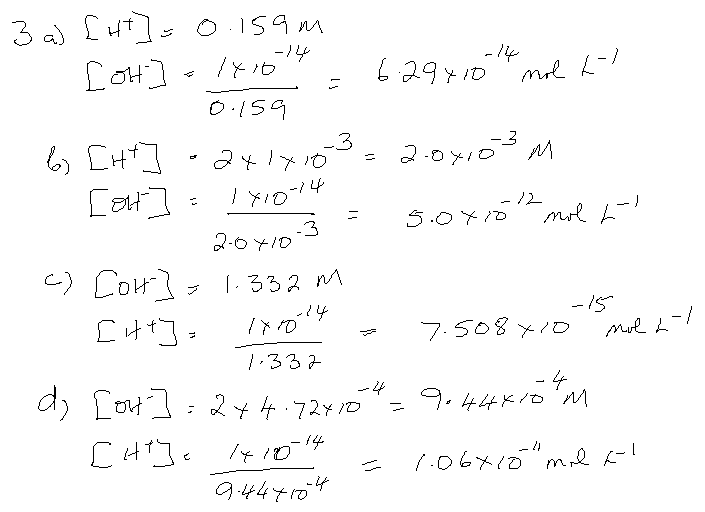 3 a) [H⁺] = 0.159 M
[OH⁻] = 1×10⁻¹⁴ / 0.159 = 6.29×10⁻¹⁴ mol L⁻¹
b) [H⁺] = 2×1×10⁻³ = 2.0×10⁻³ M
[OH⁻] = 1×10⁻¹⁴ / 2.0×10⁻³ = 5.0×10⁻¹² mol L⁻¹
c) [OH⁻] = 1.332 M
[H⁺] = 1×10⁻¹⁴ / 1.332 = 7.508×10⁻¹⁵ mol L⁻¹
d) [OH⁻] = 2×4.72×10⁻⁴ = 9.44×10⁻⁴ M
[H⁺] = 1×10⁻¹⁴ / 9.44×10⁻⁴ = 1.06×10⁻¹¹ mol L⁻¹